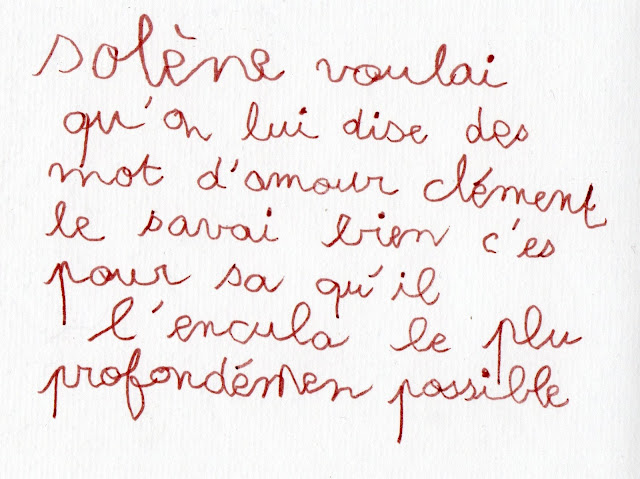 solène voulai
qu'on lui dise des
mot d'amour clément
le savai bien c'es
pour sa qu'il
l'encula le plu
profondémen possible